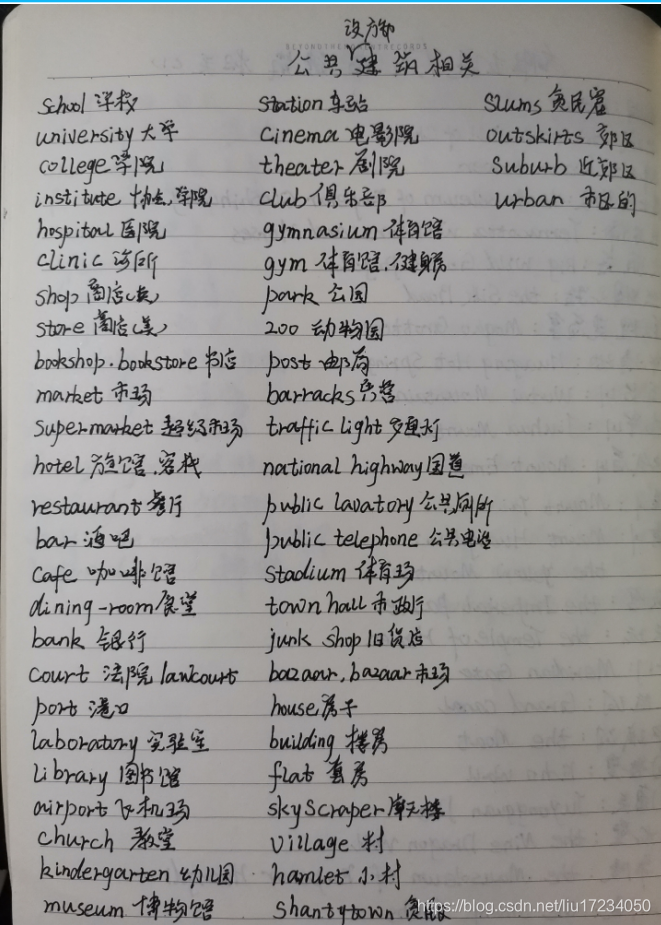 设施
公共建筑相关
school 学校
university 大学
college 学院
institute 协会,学院
hospital 医院
clinic 诊所
shop 商店(英)
store 商店(美)
bookshop.bookstore 书店
market 市场
supermarket 超级市场
hotel 旅馆.客栈
restaurant 餐厅
bar 酒吧
cafe 咖啡馆
dining-room 食堂
bank 银行
court 法院 lawcourt
port 港口
laboratory 实验室
library 图书馆
airport 飞机场
church 教堂
kindergarten 幼儿园
museum 博物馆
station 车站
cinema 电影院
theater 剧院
club 俱乐部
gymnasium 体育馆
gym 体育馆.健身房
park 公园
zoo 动物园
post 邮局
barracks 兵营
traffic light 交通灯
national highway 国道
public lavatory 公共厕所
public telephone 公共电话
stadium 体育场
town hall 市政厅
junk shop 旧货店
bazaar, bazaar 市场
house 房子
building 楼房
flat 套房
skyscraper 摩天楼
village 村
hamlet 小村
shantytown
slums 贫民窟
outskirts 郊区
suburb 近郊区
urban 市区的
https://blog.csdn.net/liu17234050